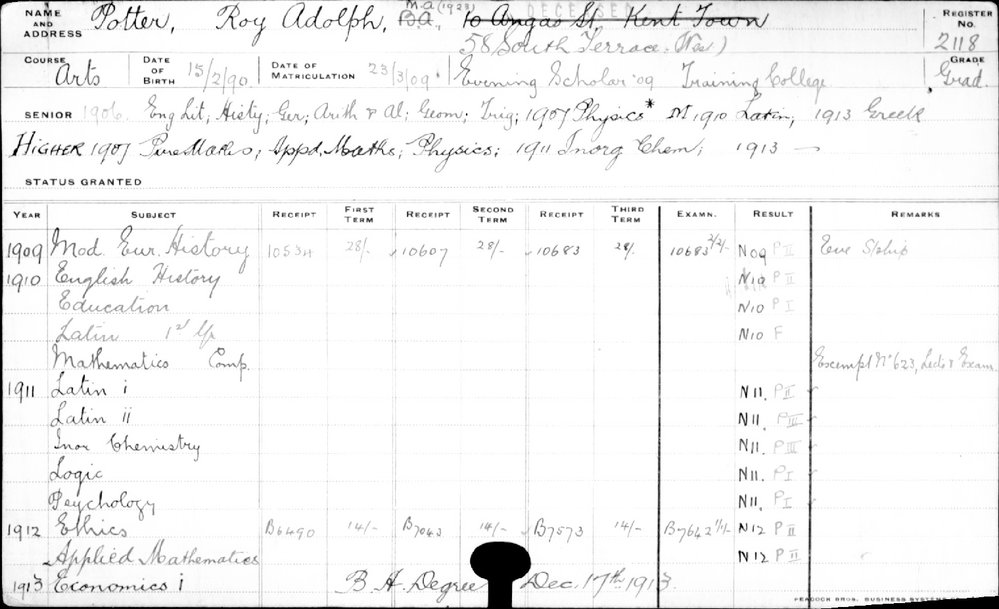 NAME AND ADDRESS Potter, Roy Adolph, B.A. M.A (1923) 10 Angas St. Kent Town DECEASED REGISTER No. 2118
58 South Terrace. (West)
COURSE Arts DATE OF BIRTH 15/2/90 DATE OF MATRICULATION 23/3/09 Evening Scholar '09 Training College GRADE Grad.
SENIOR 1906. Eng Lit; Histy; Ger; Arith & Al; Geom; Trig; 1907 Physics* M, 1910 Latin; 1913 Greek
HIGHER 1907 Pure Maths; Appd. Maths; Physics; 1911 Inorg Chem; 1913 —
STATUS GRANTED
YEAR SUBJECT RECEIPT FIRST TERM RECEIPT SECOND TERM RECEIPT THIRD TERM EXAMN. RESULT REMARKS
1909 Mod. Eur. History 10534 28/- 10607 28/- 10683 28/- 10683 2/2/- N09 P II Eve S/ship
1910 English History N10 P II
Education N10 P I
Latin 1st Yr N10 F
Mathematics Comp. Exempt No 623, Lects & Exam.
1911 Latin i N11. P II
Latin ii N11. P III
Inor Chemistry N11. P III
Logic N11. P I
Psychology N11. P I
1912 Ethics B6490 14/- B7043 14/- B7573 14/- B7642 1/1/- N12 P II
Applied Mathematics N12 P II
1913 Economics i B.A. Degree Dec. 17th 1913.
PEACOCK BROS. BUSINESS SYSTEMS